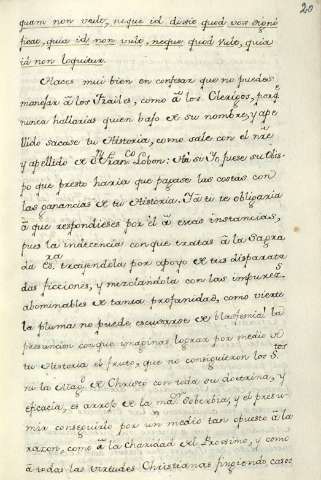 20
quam non vult, neque id dicit quod vox signi
ficat, quia id non vult, neque quod vult, quia
id non loquitur.
Haces mui bien en confesar que no puedes
manejar â los Frailes, como â los Clerigos, porq.e
nunca hallarias quien bajo de su nombre, y ape
llido sacase tu Historia, como sale con el nre
y apellido de D.n Fran.co Lobon: Ha si Yo fuese su Obis-
po que presto haria que pagase las costas con
las ganancias de tu Historia. Ya tu te obligaria
â que respondieses por êl â estas instancias,
pues la indecencia con que tratas â la Sagra
da Es.ra trayendola por apoyo de tus disparata
das ficciones, y mezclandola con las impurez.s
abominables de tanta profanidad, como vierte
la pluma no puede escusarse de blasfemia! la
presuncion con que imaginas lograr por medio de
tu Historia el fruto, que no consiguieron los S.tos
ni la Mag.d de Christo con toda su doctrina, y
eficacia, es arrojo de la m.or Soberbia, y el presu-
mir conseguirlo por un medio tan opuesto â la
razon, como â la Charidad del Proximo, y como
â todas las virtudes Christianas fingiendo casos